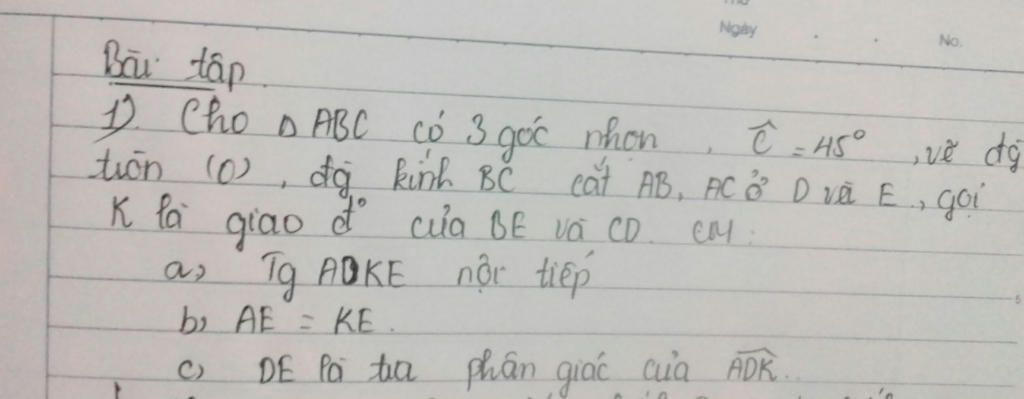 Ngày
No.
Bài tập
1) Cho Δ ABC có 3 góc nhọn, Ĉ = 45°, vẽ đg
tròn (O), đg kính BC cắt AB, AC ở D và E, gọi
K là giao đ° của BE và CD. CM:
a, Tg ADKE nội tiếp
b, AE = KE.
c, DE là tia phân giác của ADK.